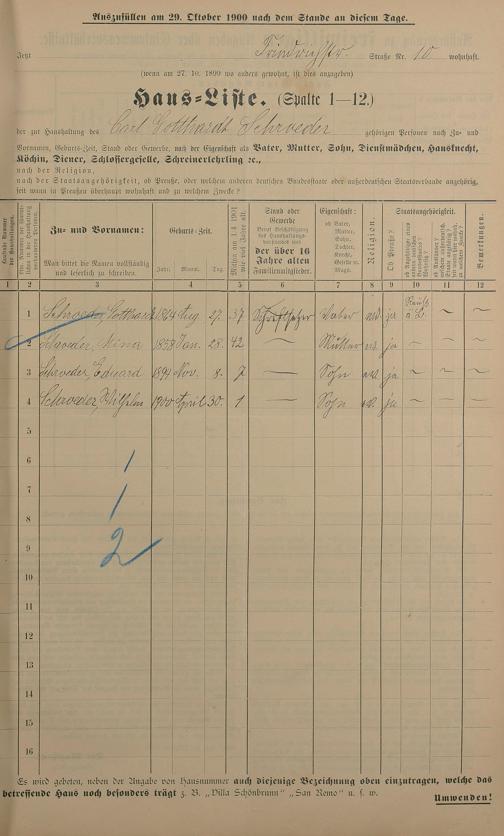 Auszufüllen am 29. Oktober 1900 nach dem Stande an diesem Tage.
Jetzt Straße Nr. 10 wohnhaft.
(wenn am 27. 10. 1899 wo anders gewohnt, ist dies anzugeben)
Haus-Liste. (Spalte 1—12.)
der zur Haushaltung des Carl Gotthardt Schroeder gehörigen Personen nach Zu- und
Vornamen, Geburts-Zeit, Stand oder Gewerbe, nach der Eigenschaft als Vater, Mutter, Sohn, Dienstmädchen, Hausknecht,
Köchin, Diener, Schlossergeselle, Schreinerlehrling ꝛc.,
nach der Religion,
nach der Staatsangehörigkeit, ob Preuße, oder welchem anderen deutschen Bundesstaate oder außerdeutschen Staatsverbande angehörig,
seit wann in Preußen überhaupt wohnhaft und zu welchem Zwecke?
Zu- und Vornamen:
Man bittet die Namen vollständig
und leserlich zu schreiben.
Geburts-Zeit.
Jahr. Monat. Tag.
Mithin am 1.4 1901
wie viel Jahre alt.
Stand oder
Gewerbe
der über 16
Jahre alten
Familienmitglieder.
Eigenschaft:
ob Vater,
Mutter,
Sohn,
Tochter,
Knecht,
Geselle u.
Magd.
Religion.
Staatsangehörigkeit.
Ob Preuße?
Bemerkungen.
1 2 3 4 5 6 7 8 9 10 11 12
1 Schroeder, Gotthardt Aug. 27. 37 Schriftsetzer Vater ja
2 Schroeder, Mina 1858 Jan. 28. 42 — Mutter ja
3 Schroeder, Eduard Nov. 8. 7 — Sohn ja
4 Schroeder, Wilhelm 1900 April 30. 1 — Sohn ja
5
6
7
8
9
10
11
12
13
14
15
16
1
1
2
Es wird gebeten, neben der Angabe von Hausnummer auch diejenige Bezeichnung oben einzutragen, welche das
betreffende Haus noch besonders trägt z. B. „Villa Schönbrunn" „San Remo" u. s. w.
Umwenden!